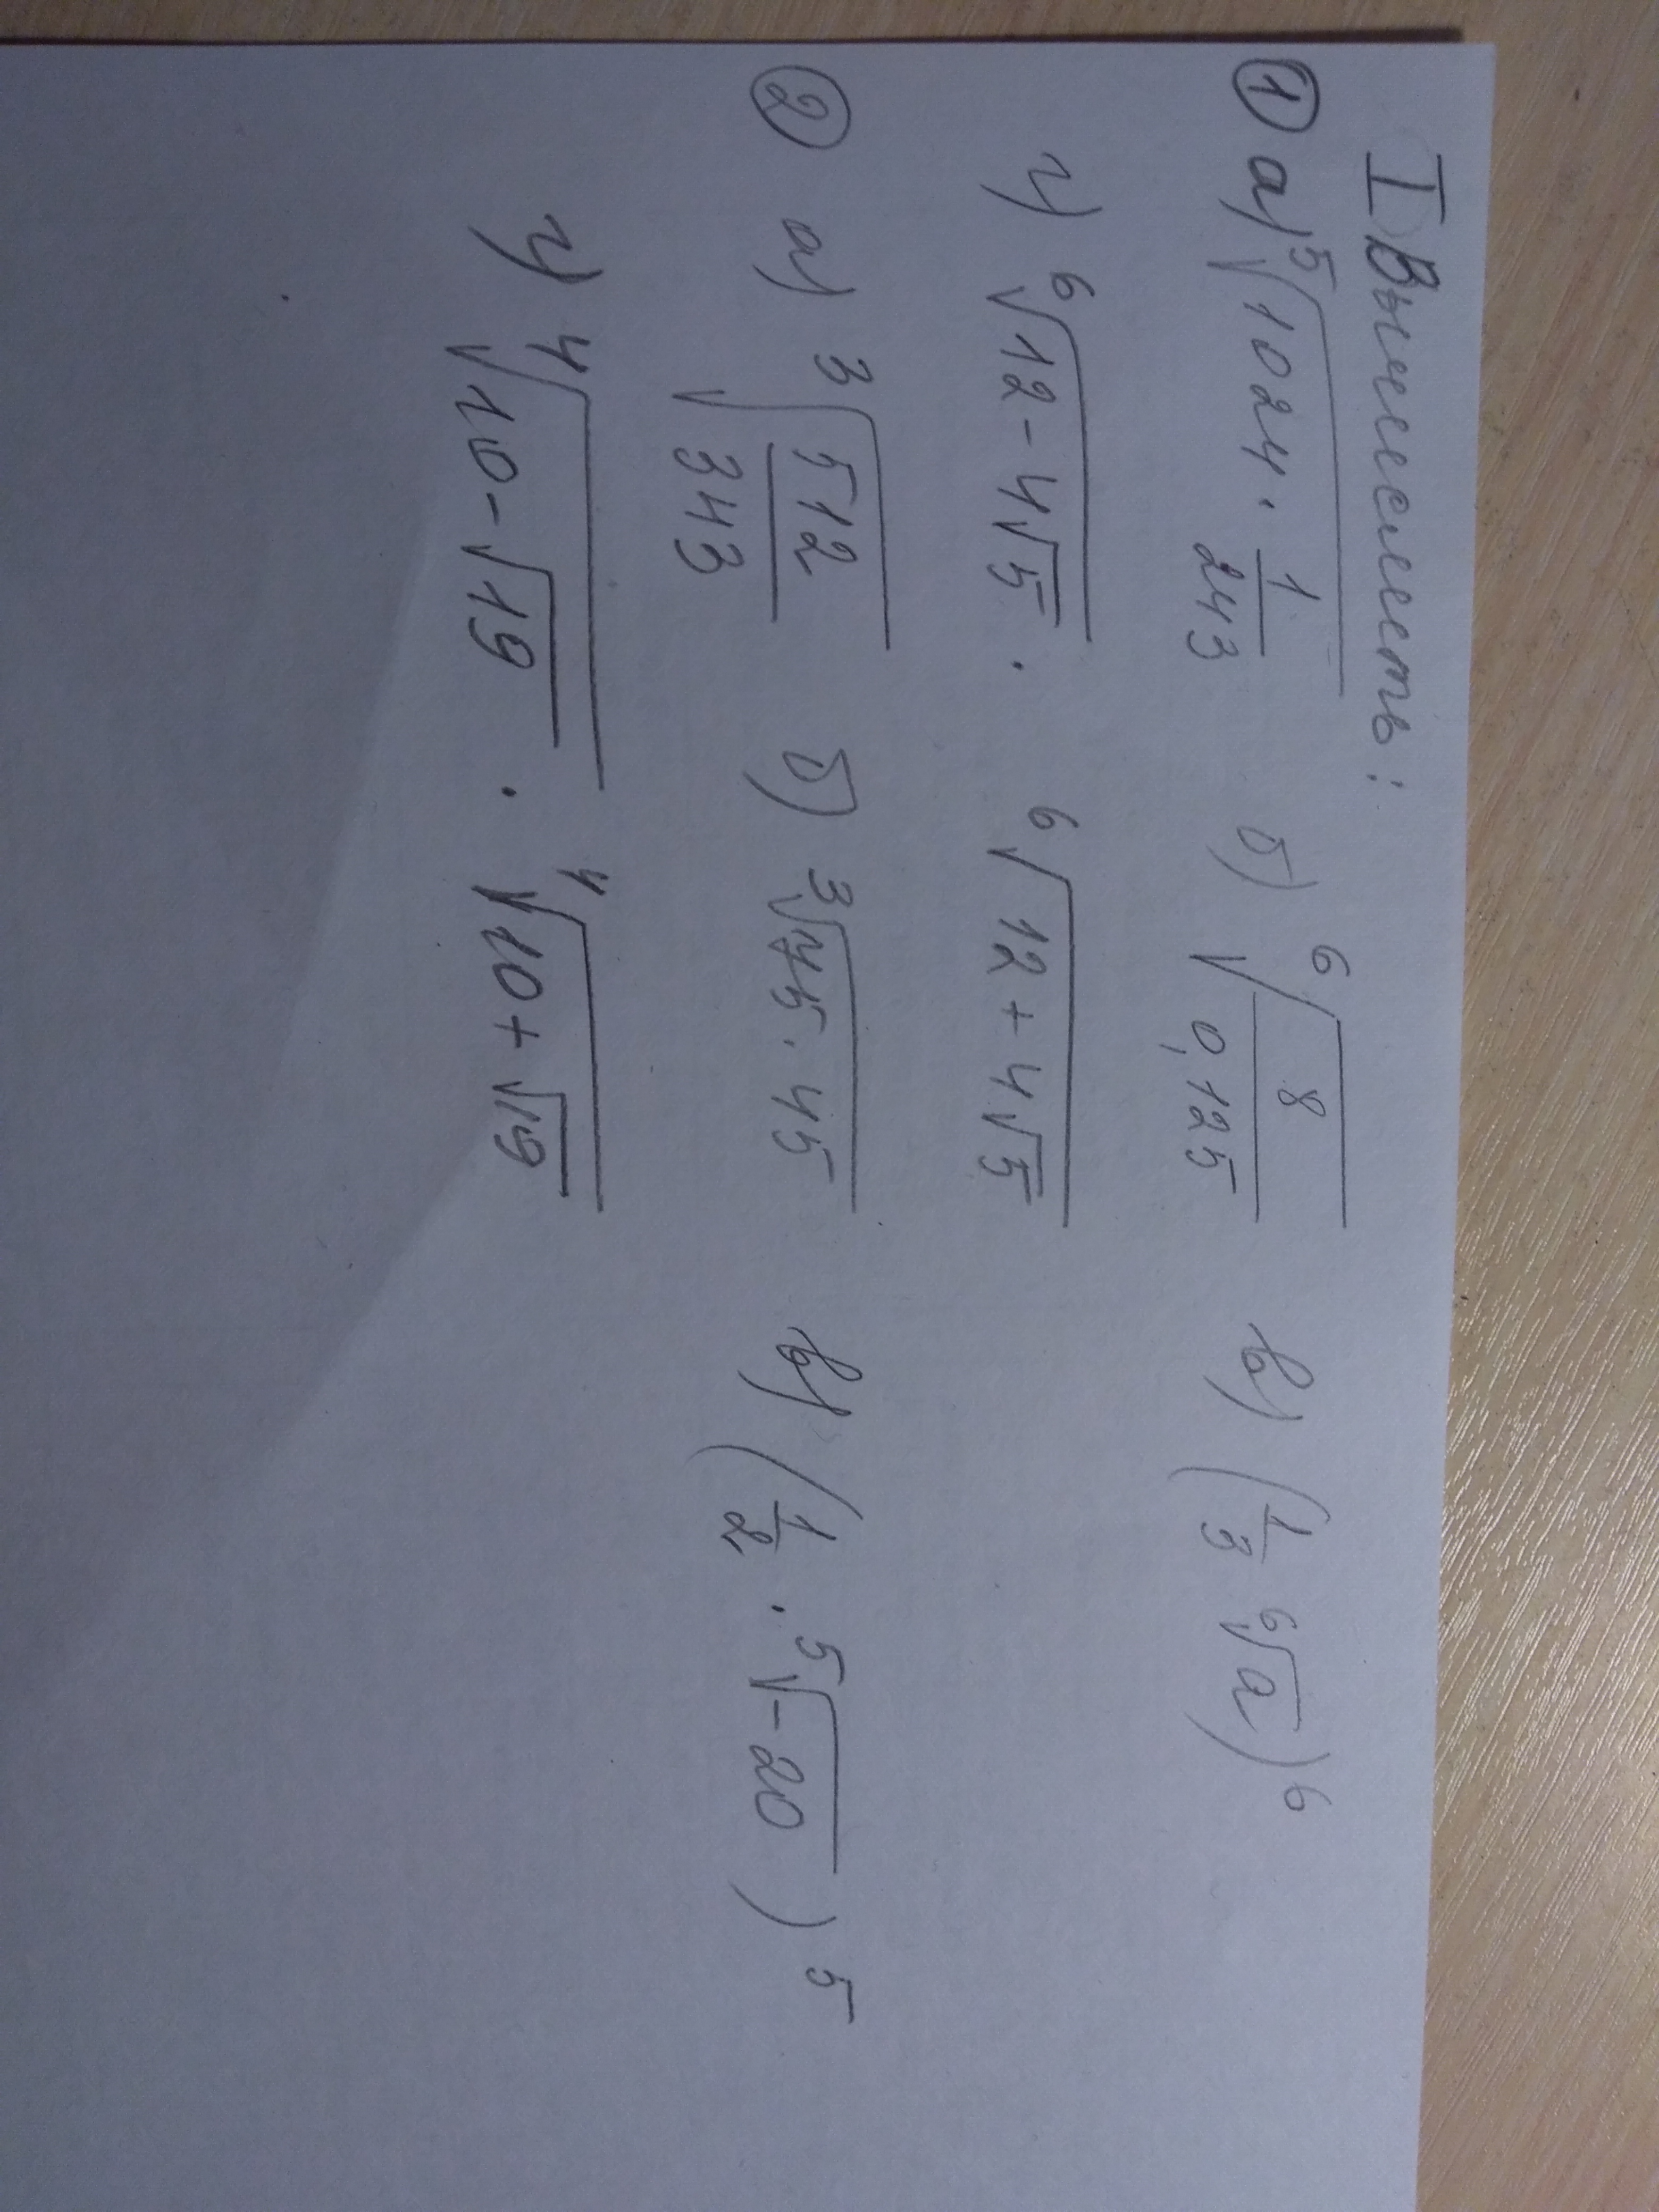 I Вычислить:
① а) ⁵√(1024 · 1/243) б) ⁶√(8/0,125) в) (1/3 ⁶√a)⁶
г) ⁶√(12 - 4√5) · ⁶√(12 + 4√5)
② а) ³√(512/343) б) ³√(75 · 45) в) (1/2 · ⁵√(-20))⁵
г) ⁴√(10 - √19) · ⁴√(10 + √19)